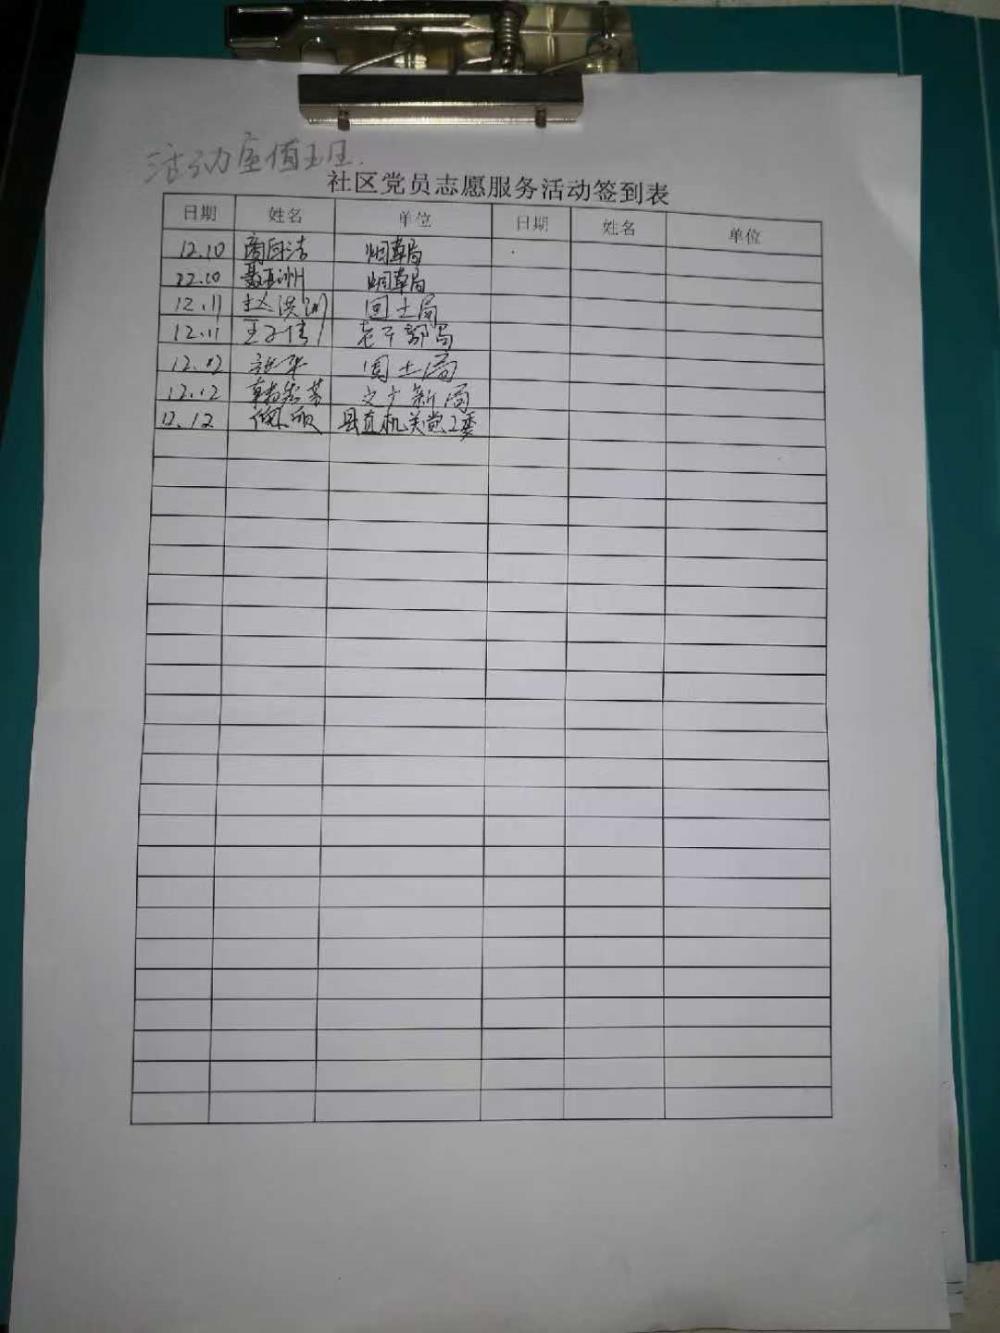 活动室值班
社区党员志愿服务活动签到表
日期 姓名 单位 日期 姓名 单位
12.10 烟草局
22.10 烟草局
12.11 赵洪 国土局
12.11 王子倩 老干部局
12.12 张华 国土局
12.12 文广新局
12.12 县直机关党工委